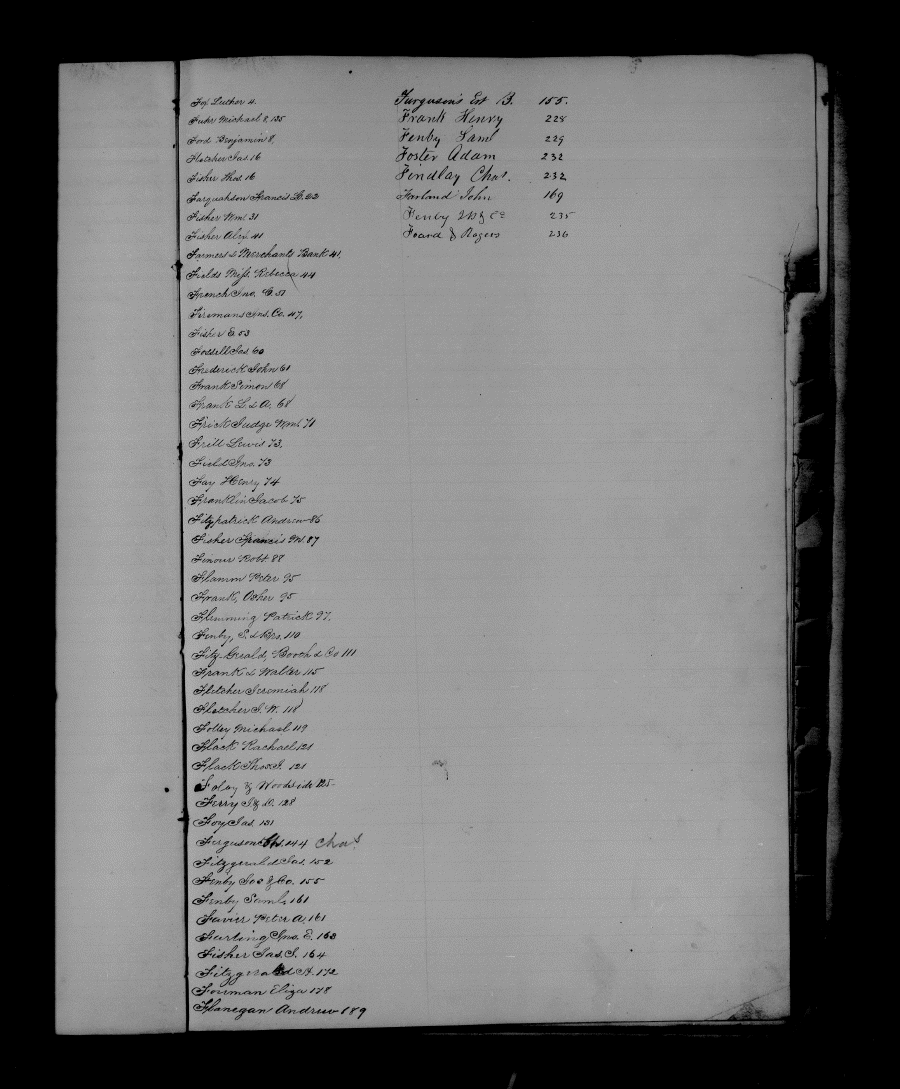 Fox Luther 4.
Fuhr Michael 8, 135
Ford Benjamin 8,
Fletcher Jas. 16
Fisher Thos. 16
Farquahson Francis G. 22
Fisher Wm. 31
Fisher Alex. 41
Farmers & Merchants Bank 41,
Fields Miss. Rebecca 44
French Jno. C. 51
Firemans Ins. Co. 47,
Fisher E. 53
Fossell Jas 60
Frederick John 61
Frank Simon 68
Frank L. & A. 68
Frick Judge Wm. 71
Frill Lewis 73,
Field Jno. 73
Fay Henry 74
Franklin Jacob 75
Fitzpatrick Andrew 86
Fisher Francis M. 87
Fenour Robt 88
Flamm Peter 95
Frank, Osher 95
Flemming Patrick 97,
Fenby, S. & Bro. 110
Fitz-Gerald, Booth & Co 111
Frank & Walter 115
Fletcher Jeremiah 118
Fletcher J. W. 118
Folley Michael 119
Flack Rachael 121
Flack Thos. J. 121
Foley & Woodside 125
Ferry J & D. 128
Foy Jas. 131
Ferguson 144 Chas.
Fitzgerald Jas. 152
Fenby Jos & Co. 155
Fenby Saml. 161
Favier Peter A. 161
Farling Jno. E. 163
Fisher Jas. J. 164
Fitzgerald H. 172
Forman Eliza 178
Flanegan Andrew 189
Furguson's Est B. 155.
Frank Henry 228
Fenby Saml 229
Foster Adam 232
Findlay Chas. 232
Farland John 169
Fenby & Co 235
Foard & Rogers 236